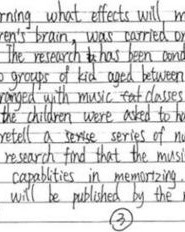 rning what effects will m
ren's brain, was carried or
The research has been cond
o groups of kid aged between
ranged with music classes
the children were asked to ha
retell a series of nu
research find that the musi
capablities in memorizing.
will be published by the r
3